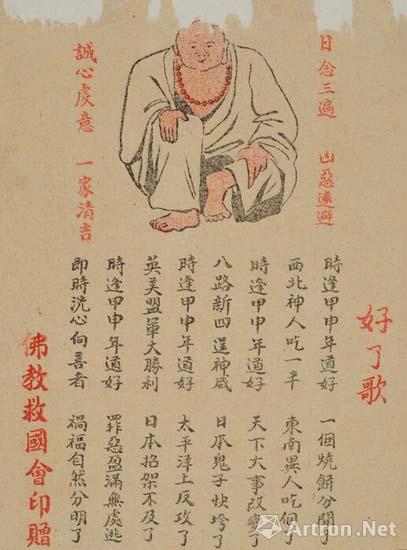 日念三遍 凶惡遠避
誠心虔意 一家清吉
好了歌
時逢甲申年道好 一個燒餅分開了
西北神人吃一半 東南異人吃個
時逢甲申年道好 天下大事改變了
八路新四逞神威 日本鬼子快垮了
時逢甲申年道好 太平洋上反攻了
英美盟軍大勝利 日本招架不及了
時逢甲申年道好 罪惡盈滿無處逃
即時洗心向善者 禍福自然分明了
佛教救國會印贈
Artron.Net